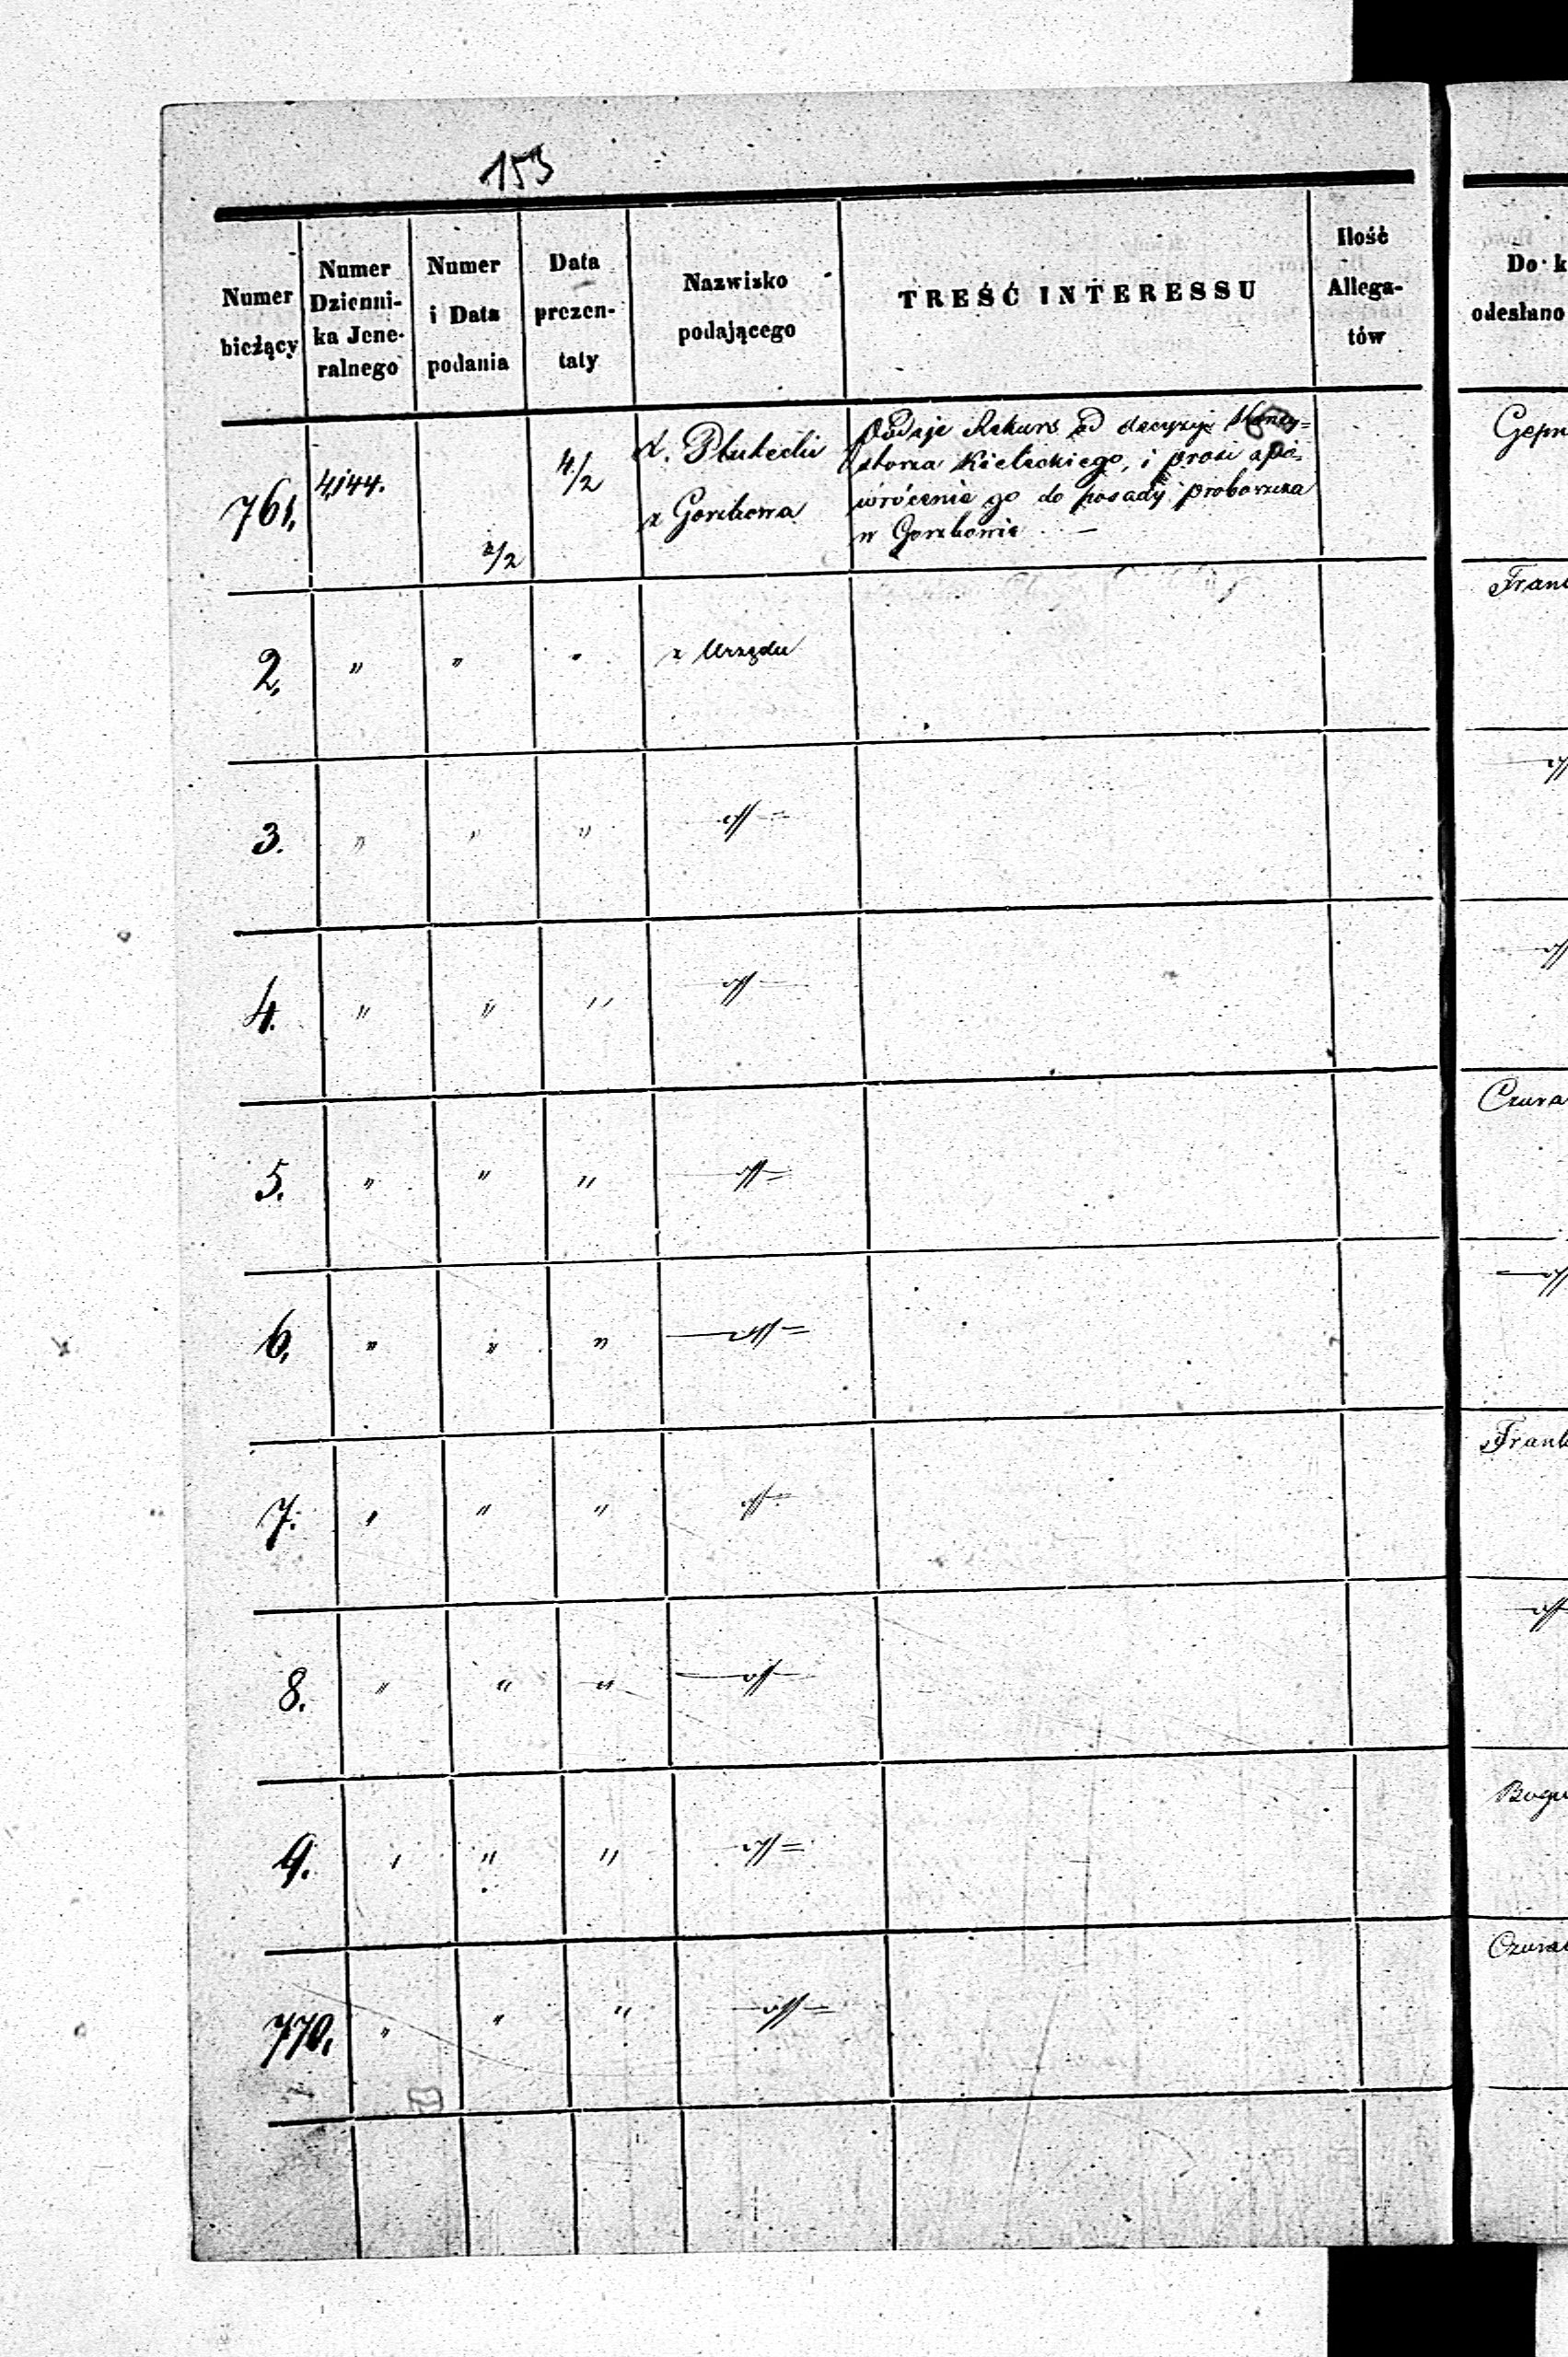 153
Numer bieżący
Numer Dzienni-ka Jene-ralnego
Numer i Data podania
Data prezen-taty
Nazwisko podającego
TREŚĆ INTERESSU
Ilość Allega-tów
Do k
odesłano
761. 4,144. 2/2 4/2
z Gorzkowa
Podaje Rekurs od decyzyi Konsy=
storza Kieleckiego, i prosi o po=
wrócenie go do posady proboszcza
w Gorzkowie —
Gepn
2. " " " z Urzędu
Frank
3. " " "
4. " " "
5. " " "
Czura
6. " " "
7. " " "
Frank
8. " " "
9. " " "
Bogu
770. " " "
Czura